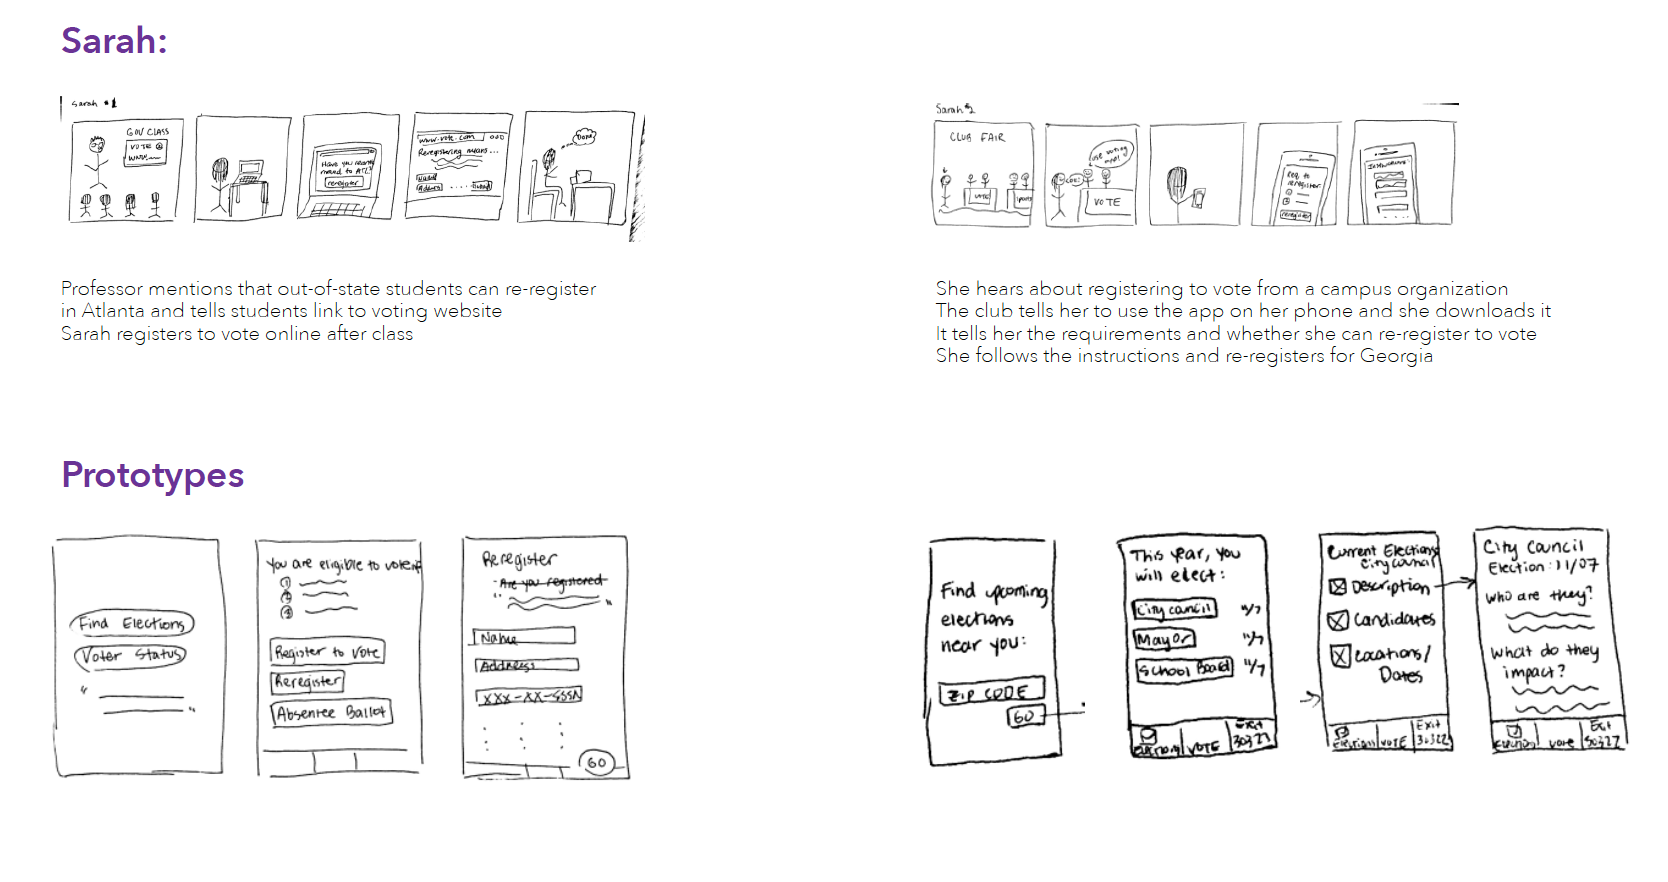 Sarah:
Sarah #1
GOV CLASS
VOTE @
www.
Have you recently
moved to ATL?
reregister
www.vote.com
Reregistering means...
Name
Address
Submit
Done!
Professor mentions that out-of-state students can re-register
in Atlanta and tells students link to voting website
Sarah registers to vote online after class
Sarah #2
CLUB FAIR
VOTE
sports
use voting
app!
cool!
VOTE
Req. to
reregister
reregister
She hears about registering to vote from a campus organization
The club tells her to use the app on her phone and she downloads it
It tells her the requirements and whether she can re-register to vote
She follows the instructions and re-registers for Georgia
Prototypes
Find Elections
Voter Status
You are eligible to vote if
①
②
③
Register to Vote
Reregister
Absentee Ballot
Reregister
Are you registered
Name
Address
XXX-XX-SSSN
GO
Find upcoming
elections
near you:
ZIP CODE
GO
This year, you
will elect:
City council 11/7
Mayor 11/7
School Board 11/7
Elections VOTE Exit 30327
Current Elections
City Council
Description
Candidates
Locations/
Dates
Elections VOTE Exit 30322
City Council
Election: 11/07
Who are they?
What do they
impact?
Elections vote Exit 30327